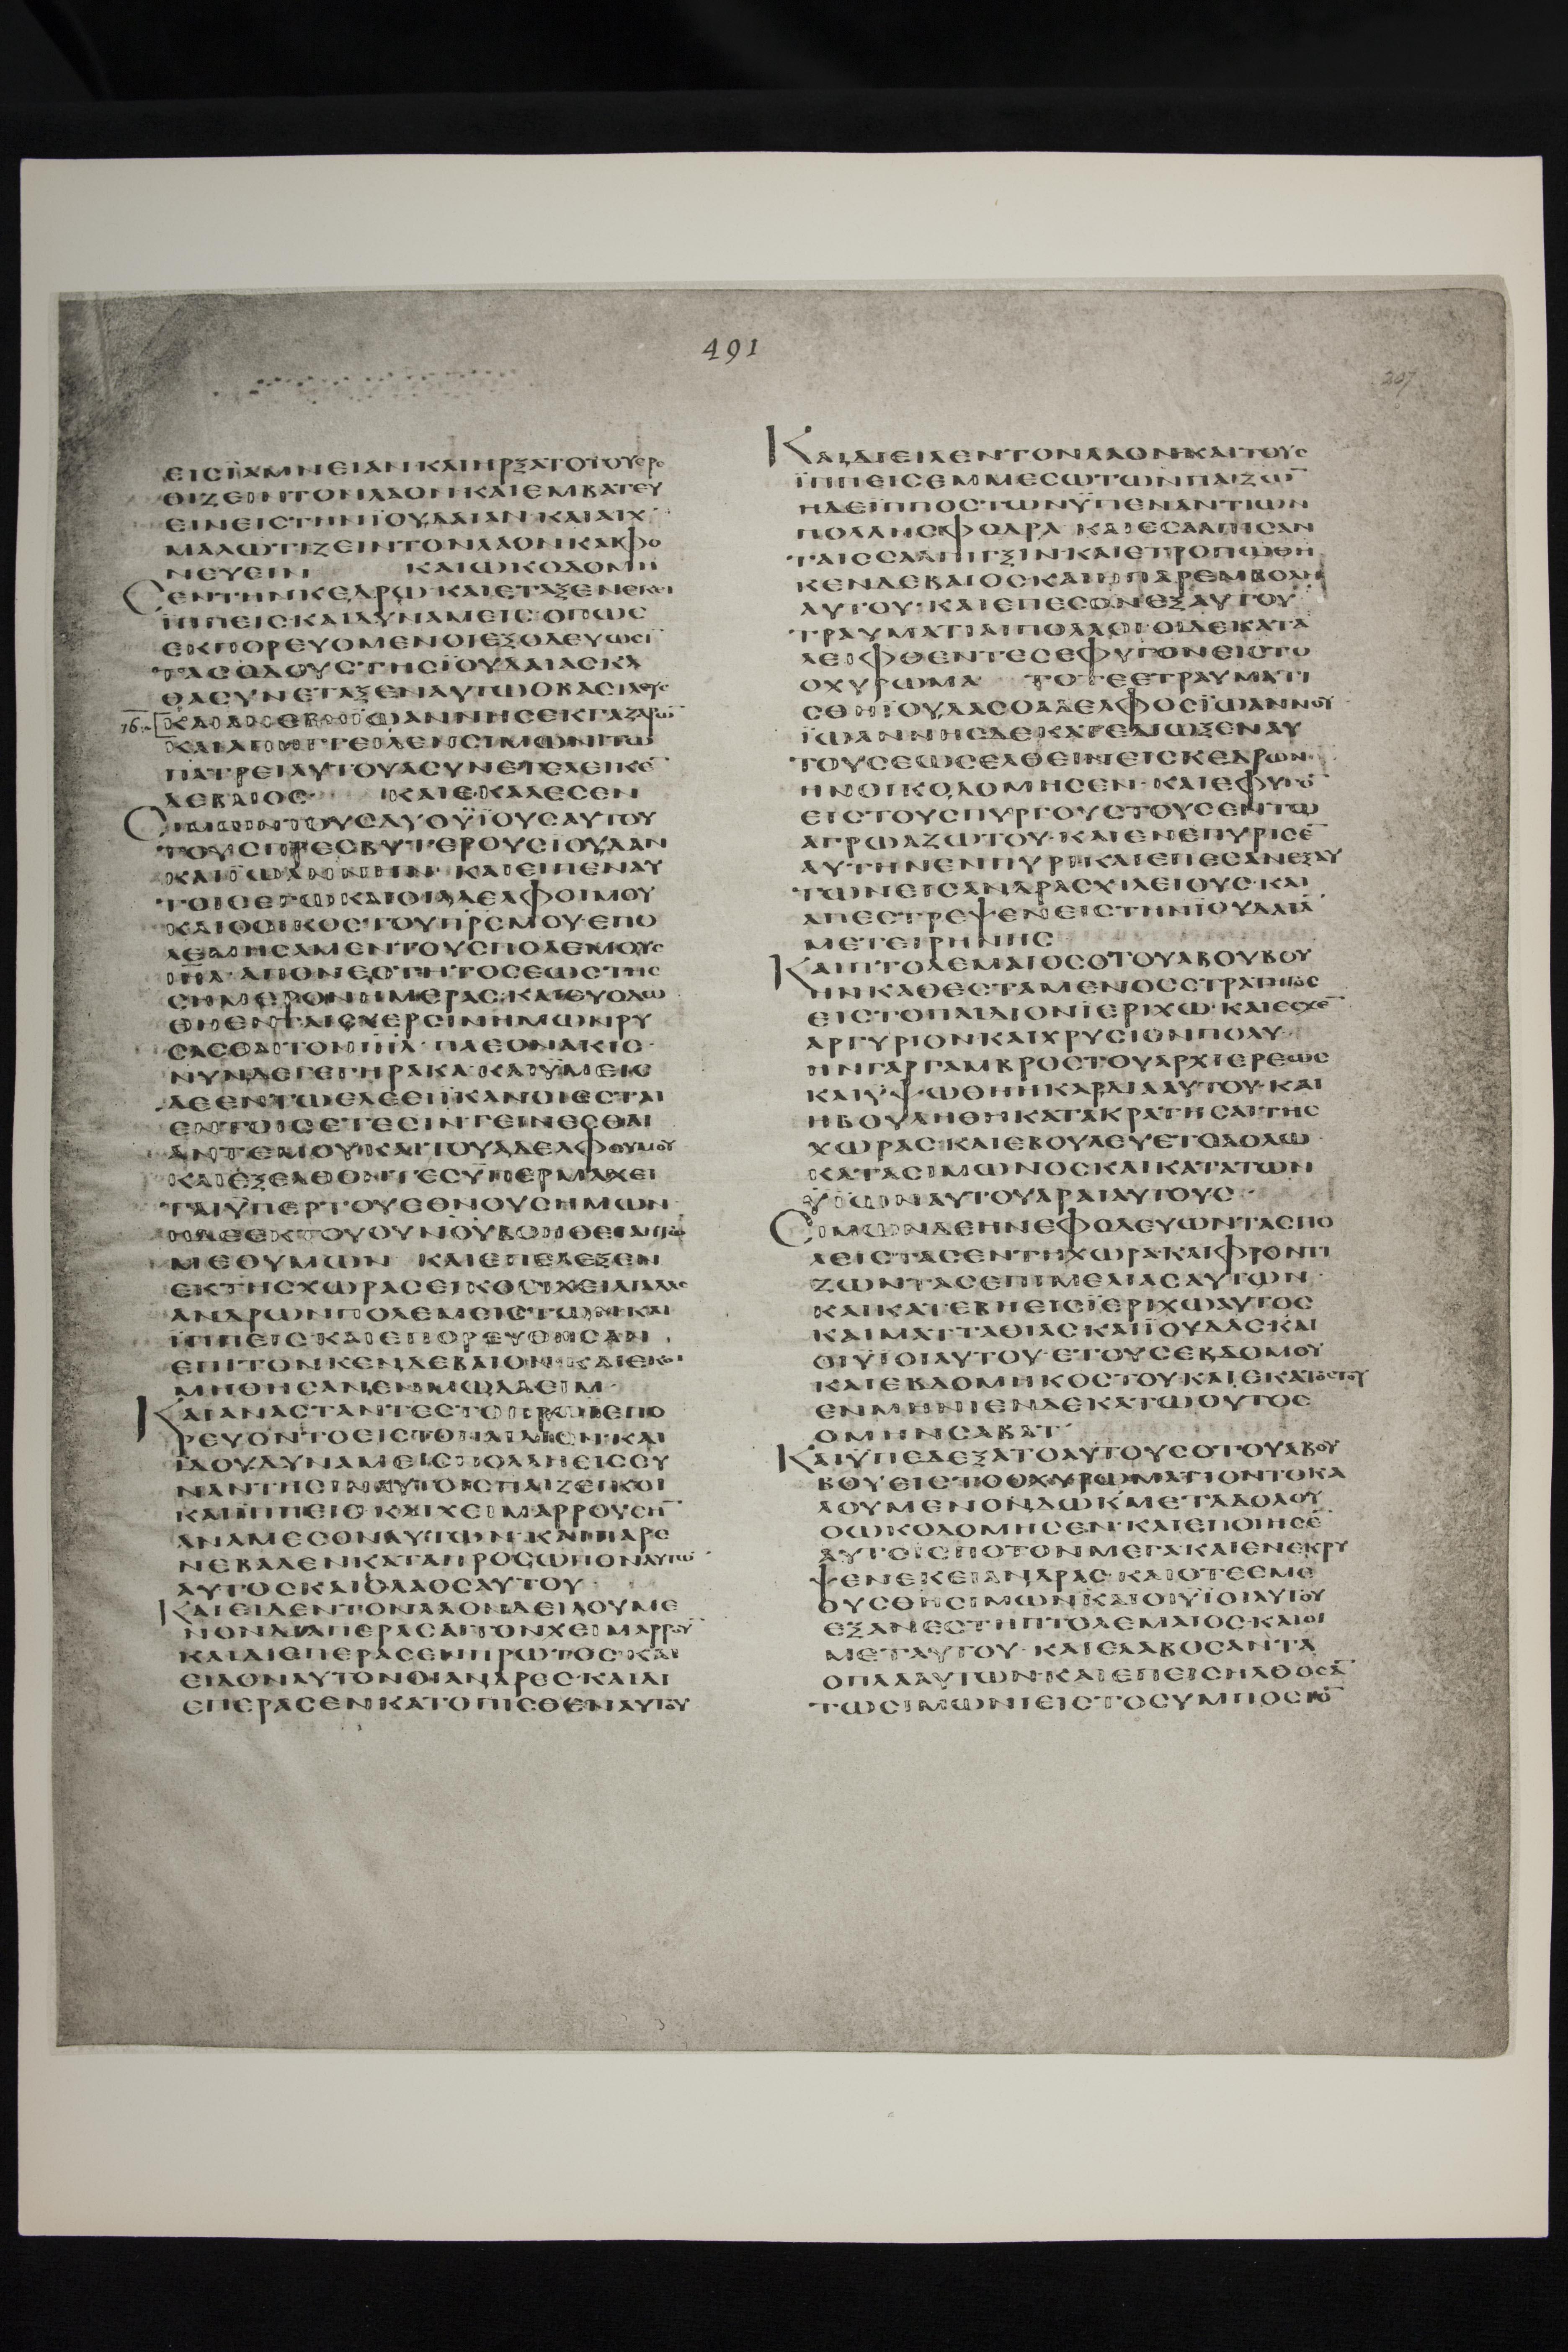 491
207
ΕΙCΪΑΜΝΕΙΑΝΚΑΙΗΡΞΑΤΟΤΟΥΕΡΕ
ΘΙΖΕΙΝΤΟΝΛΑΟΝΚΑΙΕΜΒΑΤΕΥ
ΕΙΝΕΙCΤΗΝΪΟΥΔΑΙΑΝ·ΚΑΙΑΙΧ
ΜΑΛΩΤΙΖΕΙΝΤΟΝΛΑΟΝΚΑΙΦΟ
ΝΕΥΕΙΝ ΚΑΙΩΚΟΔΟΜΗ
CΕΝΤΗΝΚΕΔΡΩ·ΚΑΙΕΤΑΞΕΝΕΚΕΙ
ΪΠΠΕΙCΚΑΙΔΥΝΑΜΕΙC·ΟΠΩC
ΕΚΠΟΡΕΥΟΜΕΝΟΙΕΞΟΔΕΥΩCΙ̅
ΤΑCΟΔΟΥCΤΗCΪΟΥΔΑΙΑCΚΑ
ΘΑCΥΝΕΤΑΞΕΝΑΥΤΩΟΒΑCΙΛΕΥC
ΚΑΙΑΝΕΒΗΪΩΑΝΝΗCΕΚΓΑΖΑΡΩ̅
ΚΑΙΑΠΗΓΓΕΙΛΕΝCΙΜΩΝΙΤΩ
ΠΑΤΡΕΙΑΥΤΟΥΑCΥΝΕΤΕΛΕΙΚΕ̅
ΔΕΒΑΙΟC· ΚΑΙΕΚΑΛΕCΕΝ
CΙΜΩΝΤΟΥCΔΥΟΫΪΟΥCΑΥΤΟΥ
ΤΟΥCΠΡΕCΒΥΤΕΡΟΥCΙΟΥΔΑΝ
ΚΑΙΪΩΑΝΝΗΝ·ΚΑΙΕΙΠΕΝΑΥ
ΤΟΙCΕΓΩΚΑΙΟΙΑΔΕΛΦΟΙΜΟΥ
ΚΑΙΟΟΙΚΟCΤΟΥΠΡCΜΟΥ·ΕΠΟ
ΛΕΜΗCΑΜΕΝΤΟΥCΠΟΛΕΜΙΟΥC
ΙΗ̅Λ·ΑΠΟΝΕΟΤΗΤΟCΕΩCΤΗC
CΗΜΕΡΟΝΗΜΕΡΑC·ΚΑΙΕΥΟΔΩ
ΘΗΕΝΤΑΙCΧΕΡCΙΝΗΜΩΝΡΥ
CΑCΘΑΙΤΟΝΙΗ̅Λ·ΠΛΕΟΝΑΚΙC·
ΝΥΝΔΕΓΕΓΗΡΑΚΑ·ΚΑΙΫΜΕΙC
ΔΕΕΝΤΩΕΛΕΕΙΪΚΑΝΟΙΕCΤΑΙ
ΕΝΤΟΙCΕΤΕCΙΝΓΕΙΝΕCΘΑΙ
ΑΝΤΕΜΟΥΚΑΙΤΟΥΑΔΕΛΦΟΥΜΟΥ
ΚΑΙΕΞΕΛΘΟΝΤΕCΫΠΕΡΜΑΧΕΙ
ΤΑΙΫΠΕΡΤΟΥΕΘΝΟΥCΗΜΩΝ·
ΗΔΕΕΚΤΟΥΟΥΝΟΥΒΟΗΘΕΙΑΗΤΩ
ΜΕΘΥΜΩΝ ΚΑΙΕΠΕΛΕΞΕΝ
ΕΚΤΗCΧΩΡΑCΕΙΚΟCΙΧΕΙΛΙΑΔΑC
ΑΝΔΡΩΝΠΟΛΕΜΙCΤΩΝ·ΚΑΙ
ΪΠΠΕΙC·ΚΑΙΕΠΟΡΕΥΘΗCΑΝ
ΕΠΙΤΟΝΚΕΝΔΕΒΑΙΟΝ·ΚΑΙΕΚΟΙ
ΜΗΘΗCΑΝΕΝΜΩΔΑΕΙΜ·
ΚΑΙΑΝΑCΤΑΝΤΕCΤΟΠΡΩΪΕΠΟ
ΡΕΥΟΝΤΟΕΙCΤΟΠΑΙΔΙΟΝ·ΚΑΙ
ΪΔΟΥΔΥΝΑΜΕΙCΠΟΛΛΗΕΙCCΥ
ΝΑΝΤΗCΙΝΑΥΤΟΙCΠΑΙΖΕΙΚΟΙ
ΚΑΙΪΠΠΕΙC·ΚΑΙΧΕΙΜΑΡΡΟΥCΗ̅
ΑΝΑΜΕCΟΝΑΥΤΩΝ·ΚΑΙΠΑΡΕ
ΝΕΒΑΛΕΝΚΑΤΑΠΡΟCΩΠΟΝΑΥΤΩ̅
ΑΥΤΟCΚΑΙΟΛΑΟCΑΥΤΟΥ·
ΚΑΙΕΙΔΕΝΤΟΝΛΑΟΝΔΕΙΛΟΥΜΕ
ΝΟΝΔΙΑΠΕΡΑCΑΙΤΟΝΧΕΙΜΑΡΡΟΥ̅
ΚΑΙΔΙΕΠΕΡΑCΕΝΠΡΩΤΟC·ΚΑΙ
ΕΙΔΟΝΑΥΤΟΝΟΙΑΝΔΡΕC·ΚΑΙΔΙ
ΕΠΕΡΑCΕΝΚΑΤΟΠΙCΘΕΝΑΥΤΟΥ
ΚΑΙΔΙΕΙΛΕΝΤΟΝΛΑΟΝ·ΚΑΙΤΟΥC
ΪΠΠΕΙCΕΜΜΕCΩΤΩΝΠΑΙΖΩ̅
ΗΔΕΪΠΠΟCΤΩΝΫΠΕΝΑΝΤΙΩΝ
ΠΟΛΛΗCΦΟΔΡΑ ΚΑΙΕCΑΛΠΙCΑΝ
ΤΑΙCCΑΛΠΙΓΞΙΝ·ΚΑΙΕΤΡΟΠΩΘΗ
ΚΕΝΔΕΒΑΙΟCΚΑΙΗΠΑΡΕΜΒΟΛΗ
ΑΥΤΟΥ·ΚΑΙΕΠΕCΟΝΕΞΑΥΤΟΥ
ΤΡΑΥΜΑΤΙΑΙΠΟΛΛΟΙ·ΟΙΔΕΚΑΤΑ
ΛΕΙΦΘΕΝΤΕCΕΦΥΓΟΝΕΙCΤΟ
ΟΧΥΡΩΜΑ ΤΟΤΕΕΤΡΑΥΜΑΤΙ
CΘΗΪΟΥΔΑCΟΑΔΕΛΦΟCΪΩΑΝΝΟΥ
ΪΩΑΝΝΗCΔΕΚΑΤΕΔΙΩΞΕΝΑΥ
ΤΟΥCΕΩCΕΛΘΕΙΝΕΙCΚΕΔΡΩΝ·
ΗΝΟΙΚΟΔΟΜΗCΕΝ·ΚΑΙΕΦΥΓΟ̅
ΕΙCΤΟΥCΠΥΡΓΟΥCΤΟΥCΕΝΤΩ
ΑΓΡΩΑΖΩΤΟΥ·ΚΑΙΕΝΕΠΥΡΙCΕ̅
ΑΥΤΗΝΕΝΠΥΡΙ·ΚΑΙΕΠΕCΑΝΕΞΑΥ
ΤΩΝΕΙCΑΝΔΡΑCΧΙΛΕΙΟΥC·ΚΑΙ
ΑΠΕCΤΡΕΨΕΝΕΙCΤΗΝΪΟΥΔΑΙΑ̅
ΜΕΤΕΙΡΗΝΗC
ΚΑΙΠΤΟΛΕΜΑΙΟCΟΤΟΥΑΒΟΥΒΟΥ
ΗΝΚΑΘΕCΤΑΜΕΝΟCCΤΡΑΤΗΓΟC
ΕΙCΤΟΠΑΙΔΙΟΝΪΕΡΙΧΩ·ΚΑΙΕCΧΕ̅
ΑΡΓΥΡΙΟΝΚΑΙΧΡΥCΙΟΝΠΟΛΥ·
ΗΝΓΑΡΓΑΜΒΡΟCΤΟΥΑΡΧΙΕΡΕΩC
ΚΑΙΫΨΩΘΗΗΚΑΡΔΙΑΑΥΤΟΥ·ΚΑΙ
ΗΒΟΥΛΗΘΗΚΑΤΑΚΡΑΤΗCΑΙΤΗC
ΧΩΡΑC·ΚΑΙΕΒΟΥΛΕΥΕΤΟΔΟΛΩ
ΚΑΤΑCΙΜΩΝΟCΚΑΙΚΑΤΑΤΩΝ
ΫΪΩΝΑΥΤΟΥΑΡΑΙΑΥΤΟΥC·
CΙΜΩΝΔΕΗΝΕΦΟΔΕΥΩΝΤΑCΠΟ
ΛΕΙCΤΑCΕΝΤΗΧΩΡΑ·ΚΑΙΦΡΟΝΤΙ
ΖΩΝΤΑCΕΠΙΜΕΛΙΑCΑΥΤΩΝ·
ΚΑΙΚΑΤΕΒΗΕΙCΪΕΡΙΧΩΑΥΤΟC
ΚΑΙΜΑΤΤΑΘΙΑCΚΑΙΪΟΥΔΑC·ΚΑΙ
ΟΙΫΙΟΙΑΥΤΟΥ·ΕΤΟΥCΕΒΔΟΜΟΥ
ΚΑΙΕΒΔΟΜΗΚΟCΤΟΥ·ΚΑΙΕΚΑΤΟCΤΟΥ
ΕΝΜΗΝΙΕΝΔΕΚΑΤΩΟΥΤΟC
ΟΜΗΝCΑΒΑΤ
ΚΑΙΫΠΕΔΕΞΑΤΟΑΥΤΟΥCΟΤΟΥΑΒΟΥ
ΒΟΥΕΙCΤΟΟΧΥΡΩΜΑΤΙΟΝΤΟΚΑ
ΛΟΥΜΕΝΟΝΔΩΚ·ΜΕΤΑΔΟΛΟΥ
ΟΩΚΟΔΟΜΗCΕΝ·ΚΑΙΕΠΟΙΗCΕ̅
ΑΥΤΟΙCΠΟΤΟΝΜΕΓΑΚΑΙΕΝΕΚΡΥ
ΨΕΝΕΚΕΙΑΝΔΡΑC·ΚΑΙΟΤΕΕΜΕ
ΘΥCΘΗCΙΜΩΝΚΑΙΟΙΫΙΟΙΑΥΤΟΥ
ΕΞΑΝΕCΤΗΠΤΟΛΕΜΑΙΟC·ΚΑΙΟΙ
ΜΕΤΑΥΤΟΥ·ΚΑΙΕΛΑΒΟCΑΝΤΑ
ΟΠΛΑΑΥΤΩΝ·ΚΑΙΕΠΕΙCΗΛΘΟCΑ̅
ΤΩCΙΜΩΝΙΕΙCΤΟCΥΜΠΟCΙΟ̅